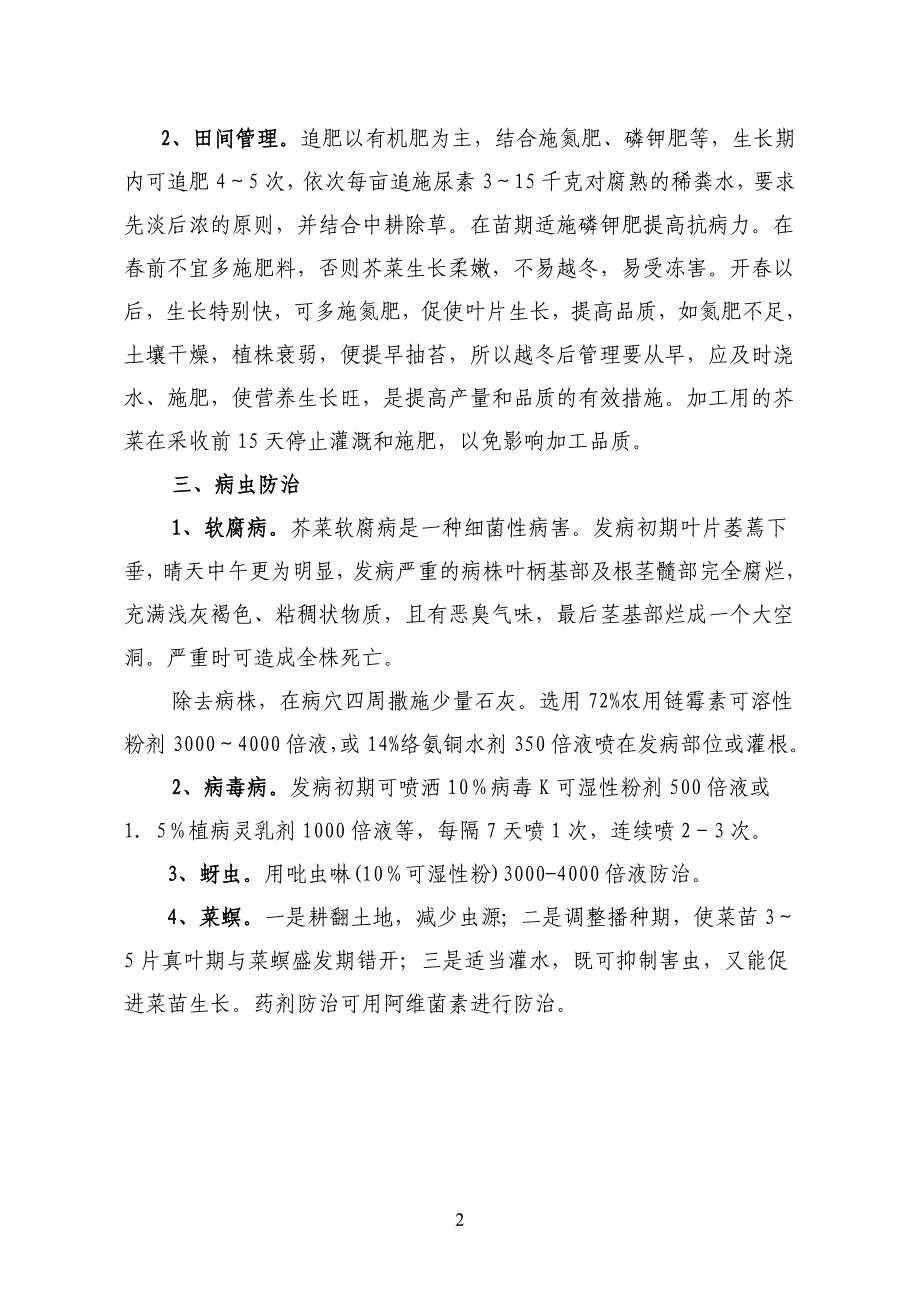 2、田间管理。追肥以有机肥为主，结合施氮肥、磷钾肥等，生长期
内可追肥 4～5 次，依次每亩追施尿素 3～15 千克对腐熟的稀粪水，要求
先淡后浓的原则，并结合中耕除草。在苗期适施磷钾肥提高抗病力。在
春前不宜多施肥料，否则芥菜生长柔嫩，不易越冬，易受冻害。开春以
后，生长特别快，可多施氮肥，促使叶片生长，提高品质，如氮肥不足，
土壤干燥，植株衰弱，便提早抽苔，所以越冬后管理要从早，应及时浇
水、施肥，使营养生长旺，是提高产量和品质的有效措施。加工用的芥
菜在采收前 15 天停止灌溉和施肥，以免影响加工品质。
三、病虫防治
1、软腐病。芥菜软腐病是一种细菌性病害。发病初期叶片萎蔫下
垂，晴天中午更为明显，发病严重的病株叶柄基部及根茎髓部完全腐烂，
充满浅灰褐色、粘稠状物质，且有恶臭气味，最后茎基部烂成一个大空
洞。严重时可造成全株死亡。
除去病株，在病穴四周撒施少量石灰。选用 72%农用链霉素可溶性
粉剂 3000～4000 倍液，或 14%络氨铜水剂 350 倍液喷在发病部位或灌根。
2、病毒病。发病初期可喷洒 10％病毒 K 可湿性粉剂 500 倍液或
1．5％植病灵乳剂 1000 倍液等，每隔 7 天喷 1 次，连续喷 2－3 次。
3、蚜虫。用吡虫啉(10％可湿性粉)3000—4000 倍液防治。
4、菜螟。一是耕翻土地，减少虫源；二是调整播种期，使菜苗 3～
5 片真叶期与菜螟盛发期错开；三是适当灌水，既可抑制害虫，又能促
进菜苗生长。药剂防治可用阿维菌素进行防治。
2